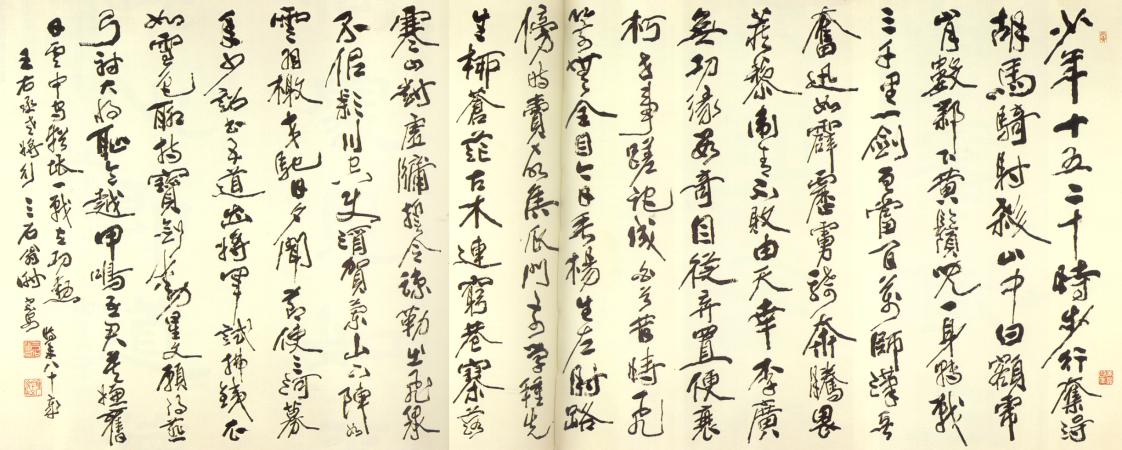 少年十五二十時步行奪得
胡馬騎射殺山中白額虎
肯數鄴下黃鬚兒一身轉戰
三千里一劍曾當百萬師漢兵
奮迅如霹靂虜騎奔騰畏
蒺藜衛青不敗由天幸李廣
無功緣數奇自從棄置便衰
朽世事蹉跎成白首昔時飛
箭無全目今日垂楊生左肘路
傍時賣故侯瓜門前學種先
生柳蒼茫古木連窮巷寥落
寒山對虛牖誓令疏勒出飛泉
不侣潁川空使酒賀蘭山下陣如
雲羽檄交馳日夕聞節使三河募
年少詔書五道出將軍試拂鐵衣
如雪色聊持寶劍動星文願得燕
弓射大將恥令越甲鳴吾君莫嫌舊
日雲中守猶堪一戰立功勳
王右丞老將行 三石翁